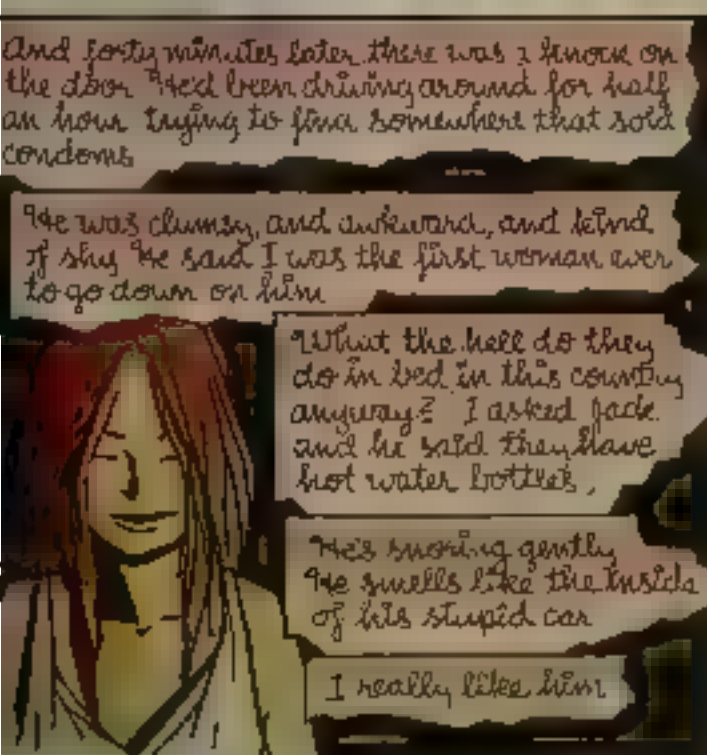 And forty minutes later there was a knock on
the door He'd been driving around for half
an hour trying to find somewhere that sold
condoms
He was clumsy, and awkward, and kind
of shy He said I was the first woman ever
to go down on him
What the hell do they
do in bed in this country
anyway? I asked Jack
and he said they have
hot water bottles,
He's snoring gently
He smells like the inside
of his stupid car
I really like him